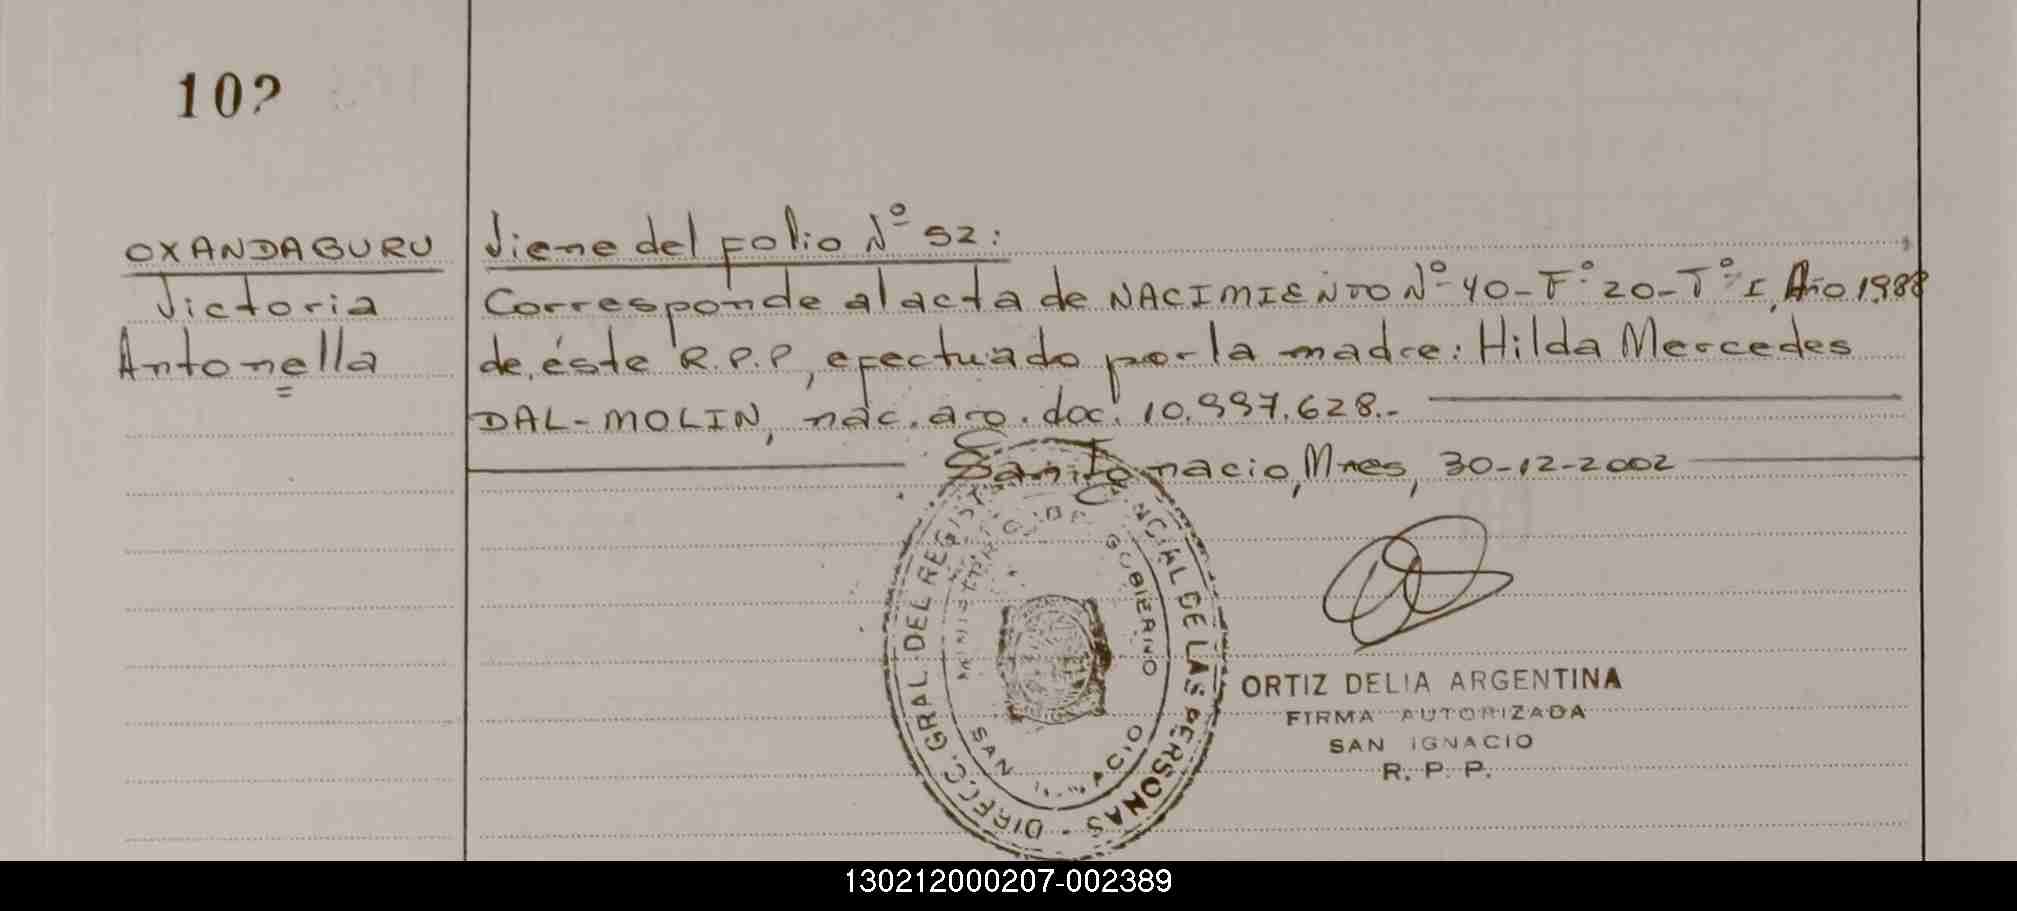 10?
OXANDABURU
Victoria
Antonella
Viene del folio Nº 52:
Corresponde al acta de NACIMIENTO Nº 40-Fº 20-Tº I, Año 1988
de éste R.P.P, efectuado por la madre: Hilda Mercedes
DAL-MOLIN, nac. arg. doc. 10.997.628.-
San Ignacio, Mnes, 30-12-2002
DIRECC. GRAL. DEL REGIST NCIAL DE LAS PERSONAS -
MINISTERIO DE GOBIERNO
SAN CIO
ORTIZ DELIA ARGENTINA
FIRMA AUTORIZADA
SAN IGNACIO
R. P. P.
130212000207-002389